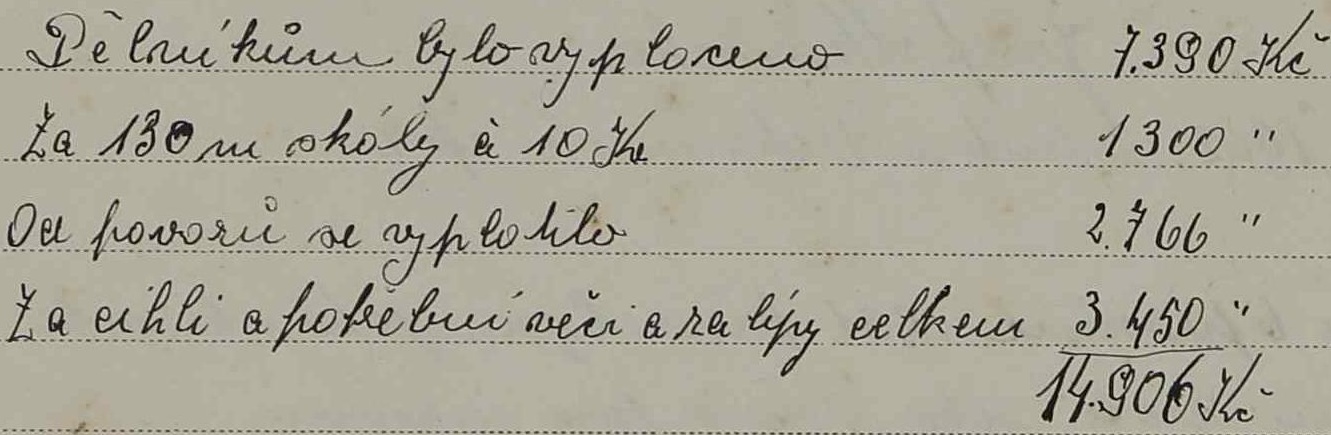 Dělníkům bylo vyplaceno 7.390 Kč
Za 130 m skály à 10 Kč 1300 "
Od povozů se vyplatilo 2.766 "
Za cihli a potřební věci a za lípy celkem 3.450 "
14.906 Kč